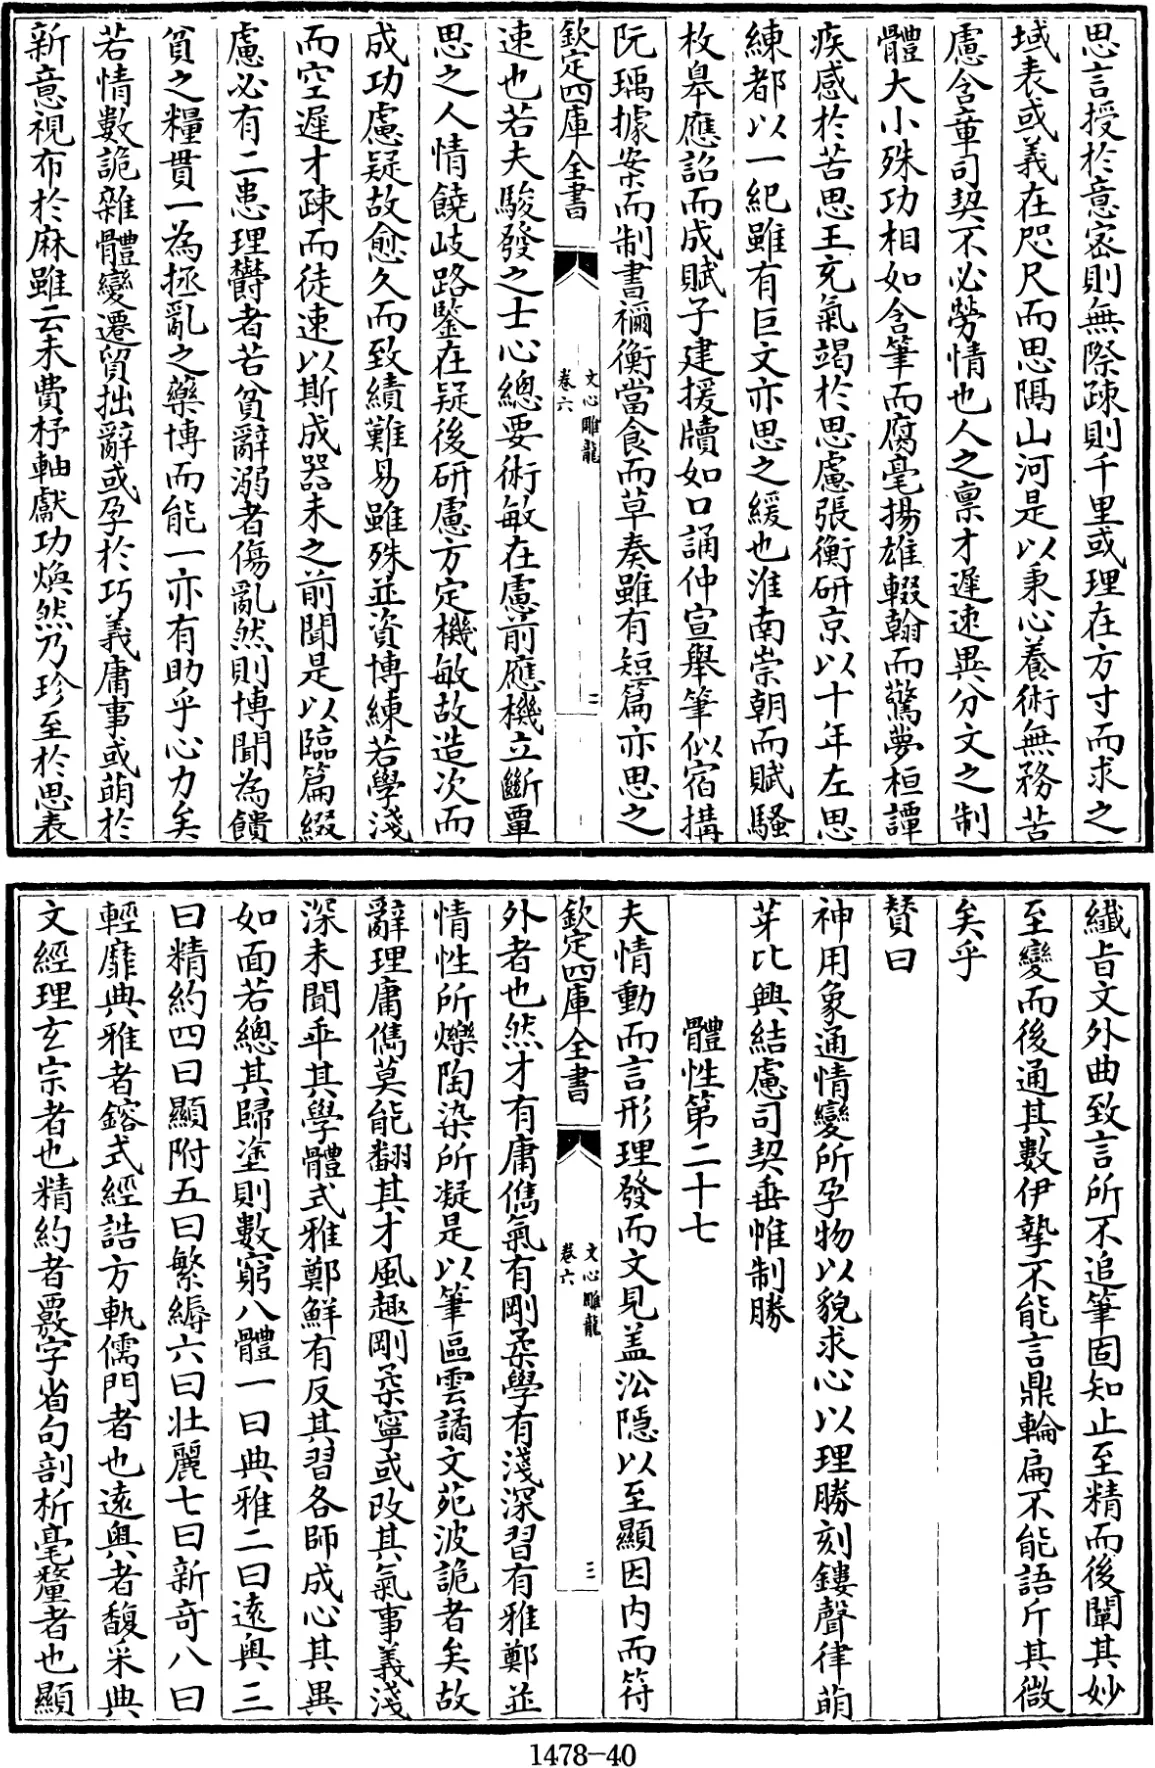 思言授於意密則無際疎則千里或理在方寸而求之
域表或義在咫尺而思隔山河是以秉心養術無務苦
慮含章司契不必勞情也人之禀才遲速異分文之制
體大小殊功相如含筆而腐毫揚雄輟翰而驚夢桓譚
疾感於苦思王充氣竭於思慮張衡研京以十年左思
練都以一紀雖有巨文亦思之緩也淮南崇朝而賦騷
枚皋應詔而成賦子建援牘如口誦仲宣舉筆似宿搆
阮瑀據案而制書禰衡當食而草奏雖有短篇亦思之
欽定四庫全書
文心雕龍
卷六
二
速也若夫駿發之士心總要術敏在慮前應機立斷覃
思之人情饒岐路鑒在疑後研慮方定機敏故造次而
成功慮疑故愈久而致績難易雖殊並資博練若學淺
而空遲才疎而徒速以斯成器未之前聞是以臨篇綴
慮必有二患理鬱者苦貧辭溺者傷亂然則博聞為饋
貧之糧貫一為拯亂之藥博而能一亦有助乎心力矣
若情數詭雜體變遷貿拙辭或孕於巧義庸事或萌於
新意視布於麻雖云未費杼軸獻功煥然乃珍至於思表
纖旨文外曲致言所不追筆固知止至精而後闡其妙
至變而後通其數伊摯不能言鼎輪扁不能語斤其微
矣乎
贊曰
神用象通情變所孕物以貌求心以理勝刻鏤聲律萌
芽比興結慮司契垂帷制勝
體性第二十七
夫情動而言形理發而文見盖沿隱以至顯因內而符
欽定四庫全書
文心雕龍
卷六
三
外者也然才有庸儁氣有剛柔學有淺深習有雅鄭並
情性所爍陶染所凝是以筆區雲譎文苑波詭者矣故
辭理庸儁莫能翻其才風趣剛柔寧或改其氣事義淺
深未聞乖其學體式雅鄭鮮有反其習各師成心其異
如面若總其歸塗則數窮八體一曰典雅二曰遠奧三
曰精約四曰顯附五曰繁縟六曰壯麗七曰新奇八曰
輕靡典雅者鎔式經誥方軌儒門者也遠奧者馥采典
文經理玄宗者也精約者覈字省句剖析毫釐者也顯
1478-40